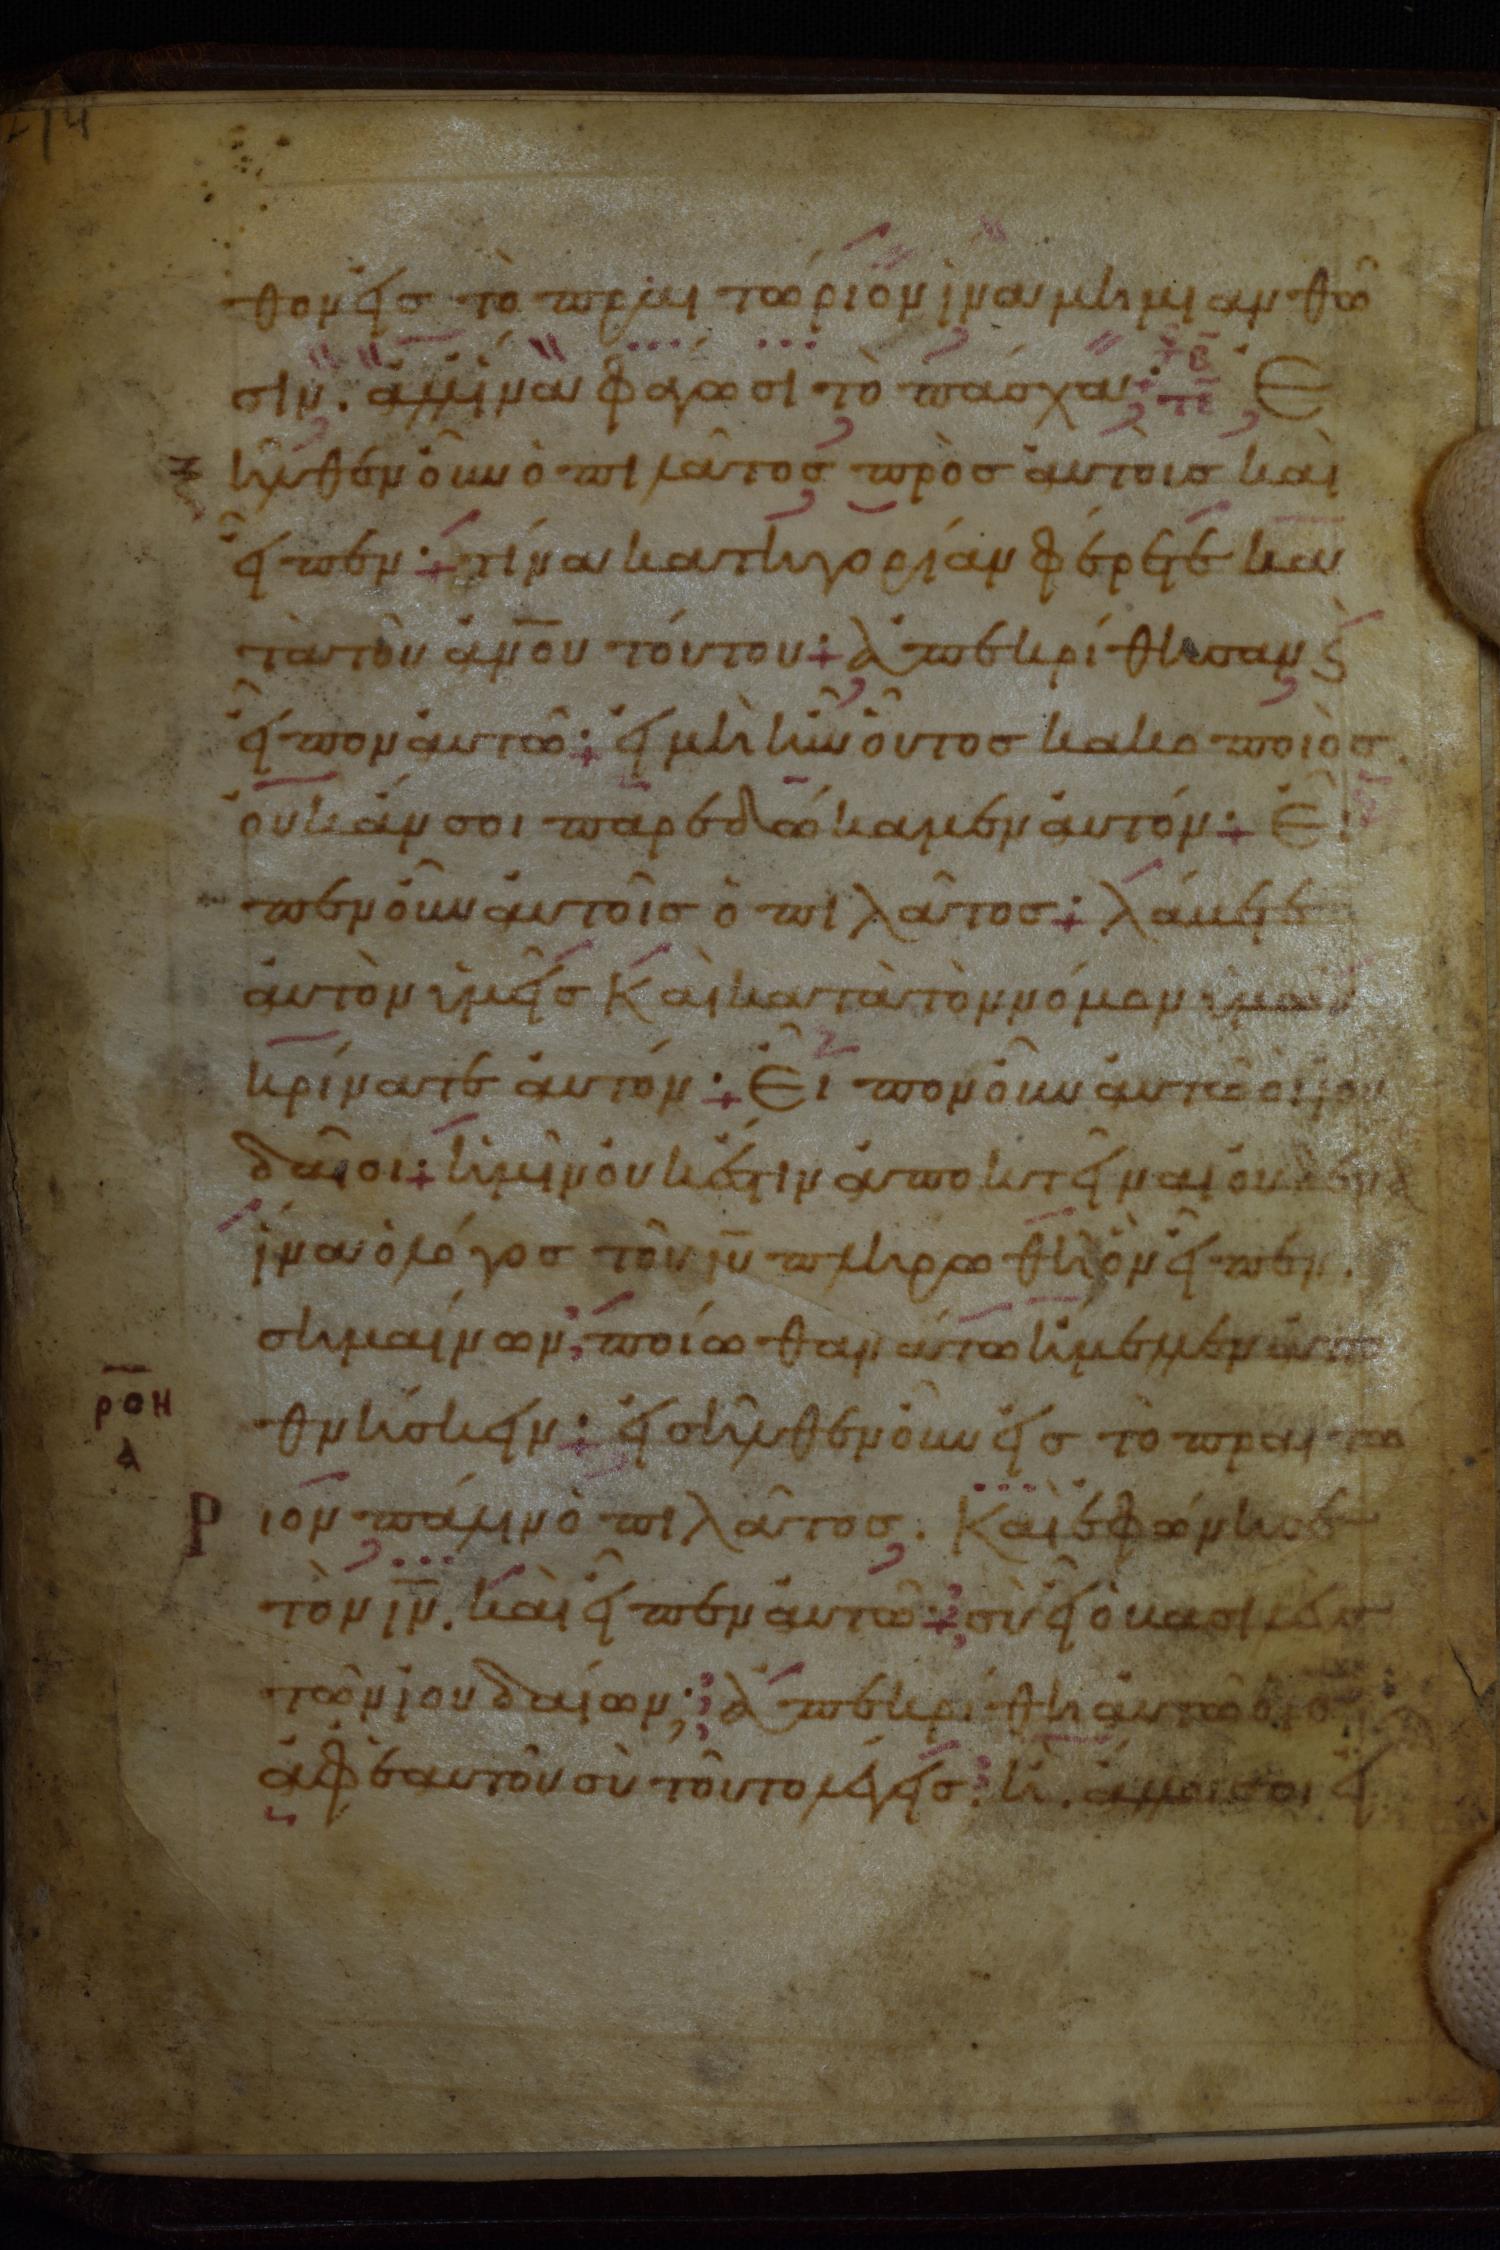 274
θον εἰς τὸ πραιτώριον ἵνα μὴ μιανθῶ
σιν. ἀλλ' ἵνα φάγωσι τὸ πάσχα· Ἐ
ξῆλθεν οὖν ὁ πιλᾶτος πρὸς ἀυτοὶς καὶ
εἶπεν· τίνα κατηγορίαν φέρεται κα
τὰ τοῦ ἀν̅ου τόυτου· ἀπεκρίθησαν ϗ
εἶπον ἀυτῶ· εἰ μὴ ἦν ὁῦτος κακοποιὸς
ὀυκ ἄν σοι παρεδώκαμεν ἀυτόν· Εἶ
πεν οὖν ἀυτοῖς ὁ πιλᾶτος· λάβεται
ἀυτὸν ὑμεῖς Καὶ κατὰ τὸν νόμον ὑμῶν
κρίνατε ἀυτόν· Εἶπον οὖν ἀυτῶ ὁι ἰου
δαῖοι· ἡμῖν ὀυκ ἔξεστιν ἀποκτεῖναι ὀυδένα
ἵνα ὁ λόγος τοῦ ιυ̅ πληρωθῆ ὃν εἶπεν.
σημαίνων, ποίω θανάτω ἤμελλεν ἀπο
θνήσκειν· εἰσῆλθεν οὖν εἰς τὸ πραιτω
ρον
λ
Ριον πάλιν ὁ πιλᾶτος. Καὶ ἐφώνησε
τὸν ιν̅. καὶ εἶπεν ἀυτῶ· σὺ εἶ ὁ βασιλεὺς
τῶν ἰουδαίων; ἀπεκρίθη ἀυτῶ ὁ ις̅
ἀφ' ἑαυτοῦ σὺ τοῦτο λέγεις. ἢ. ἄλλοι σοι εἶ